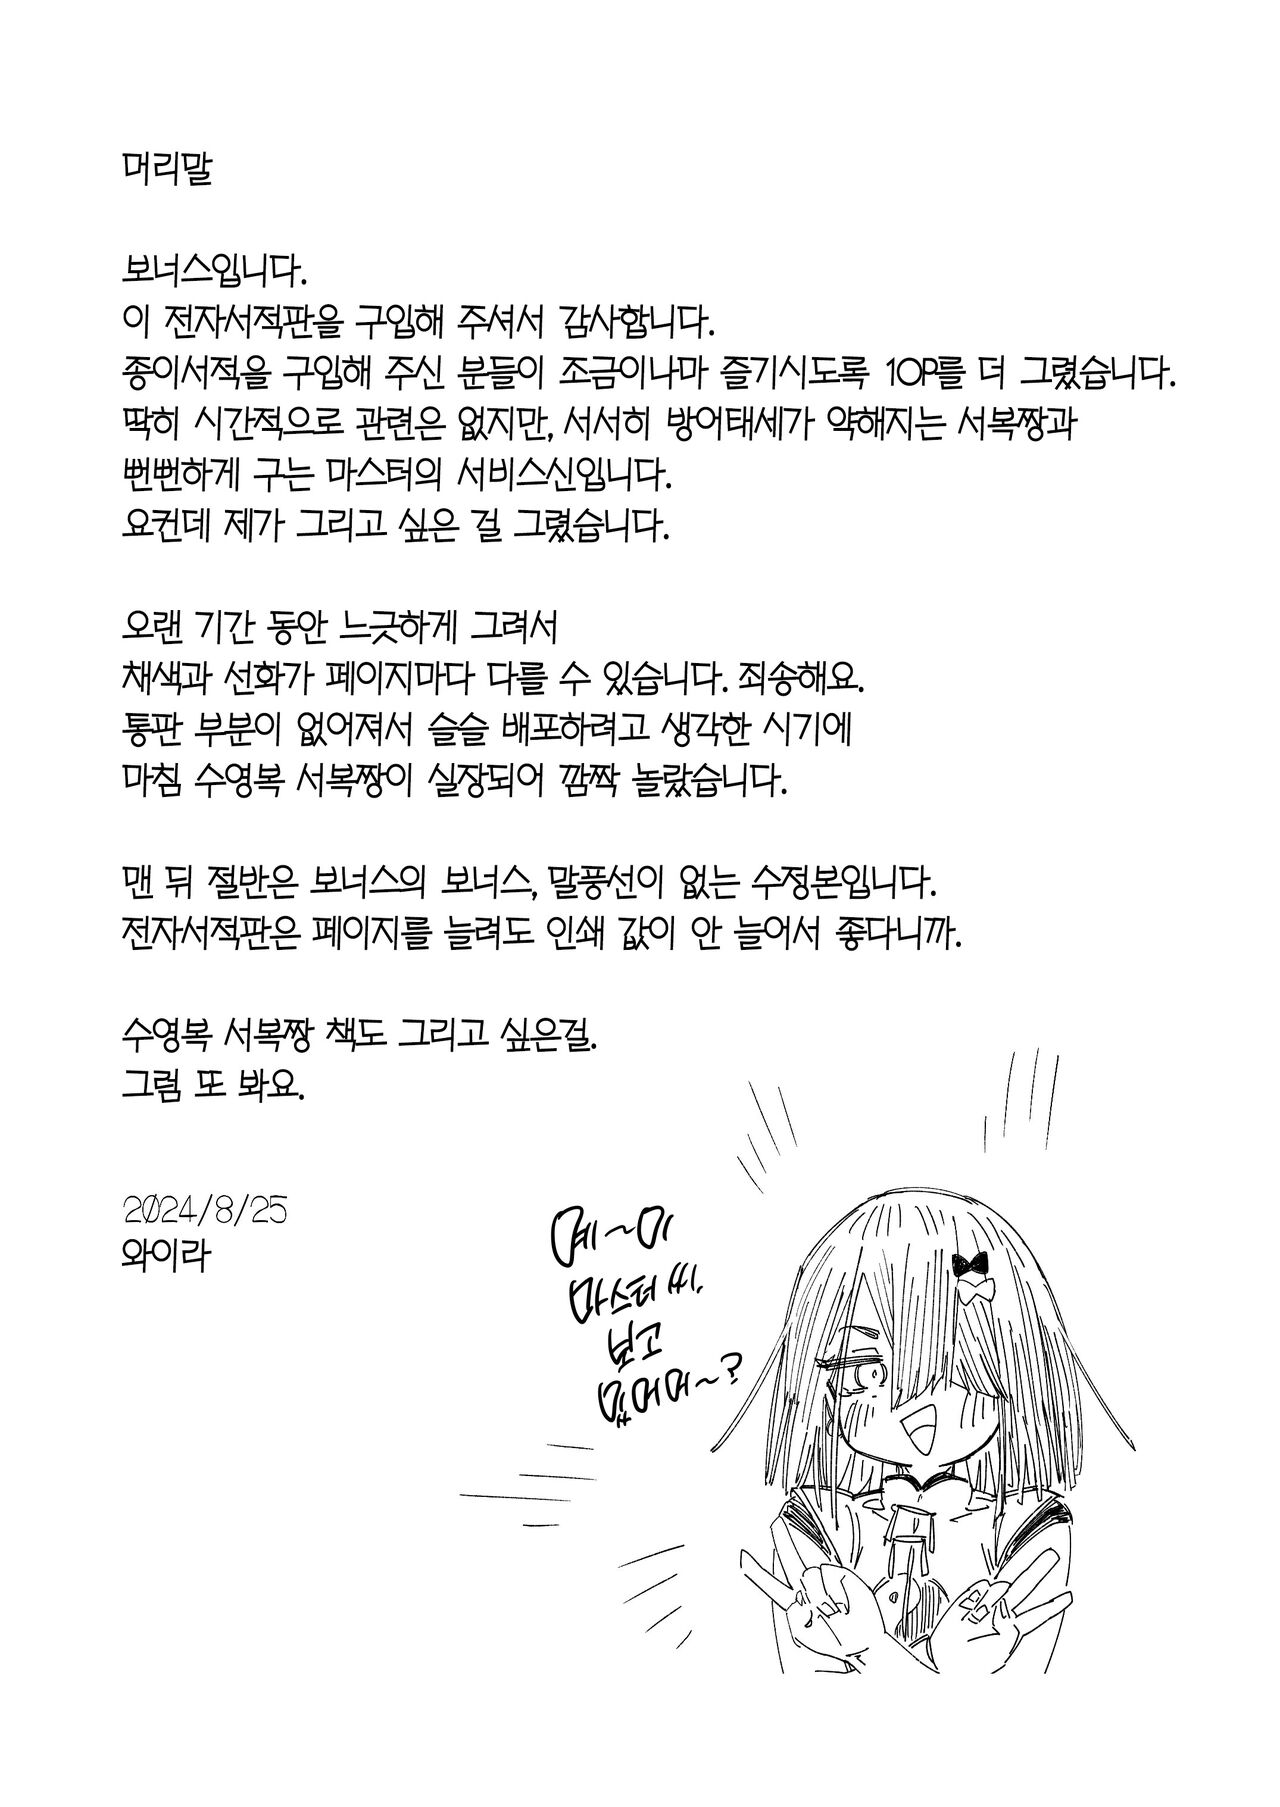 머리말
보너스입니다.
이 전자서적판을 구입해 주셔서 감사합니다.
종이서적을 구입해 주신 분들이 조금이나마 즐기시도록 10P를 더 그렸습니다.
딱히 시간적으로 관련은 없지만, 서서히 방어태세가 약해지는 서복짱과
뻔뻔하게 구는 마스터의 서비스신입니다.
요컨데 제가 그리고 싶은 걸 그렸습니다.
오랜 기간 동안 느긋하게 그려서
채색과 선화가 페이지마다 다를 수 있습니다. 죄송해요.
통판 부분이 없어져서 슬슬 배포하려고 생각한 시기에
마침 수영복 서복짱이 실장되어 깜짝 놀랐습니다.
맨 뒤 절반은 보너스의 보너스, 말풍선이 없는 수정본입니다.
전자서적판은 페이지를 늘려도 인쇄 값이 안 늘어서 좋다니까.
수영복 서복짱 책도 그리고 싶은걸.
그럼 또 봐요.
2024/8/25
와이라
예~이
마스터 씨,
보고
있어어~?